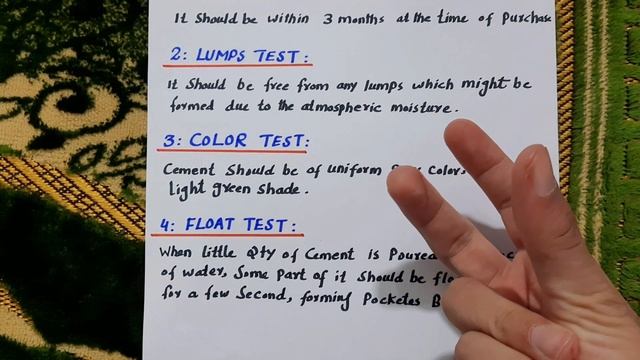 It Should be within 3 months at the time of Purchase
2: LUMPS TEST:
It Should be free from any lumps which might be
formed due to the atmospheric moisture.
3: COLOR TEST:
Cement Should be of uniform Color
Light green shade.
4: FLOAT TEST:
When little Qty of Cement is Poured
of water, Some Part of it Should be
for a few Second, forming Pocketes